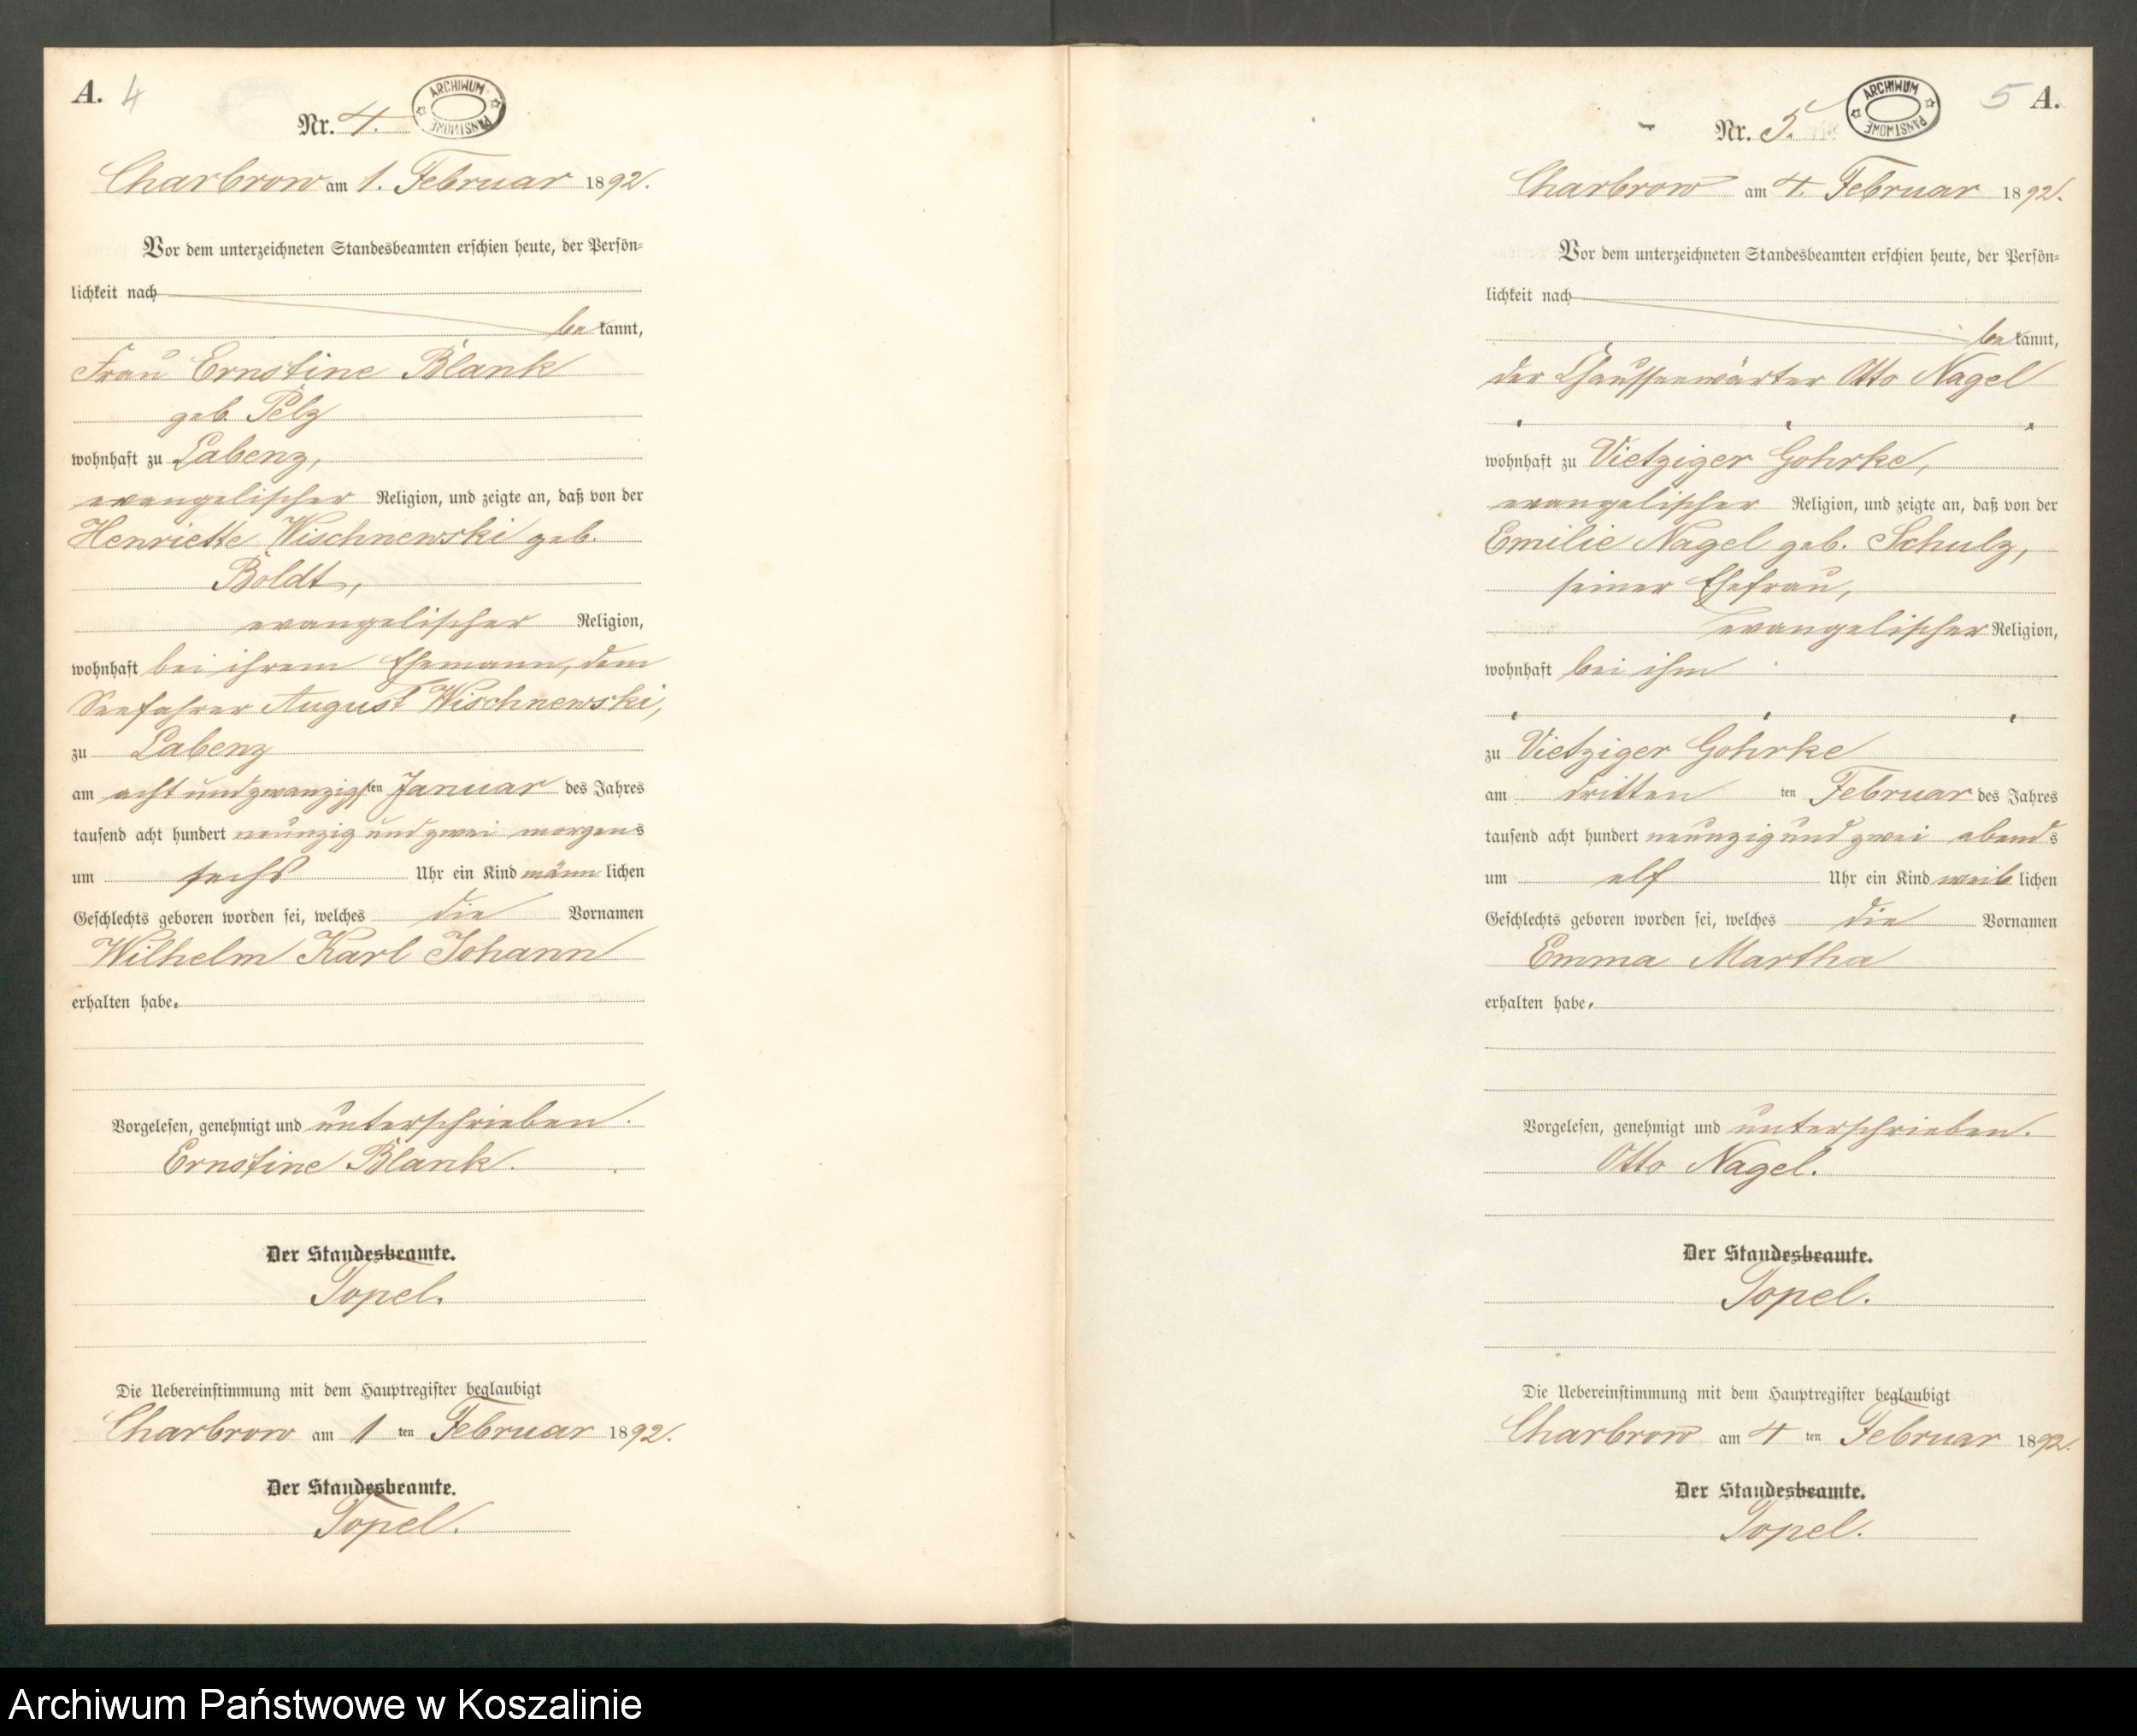 A. 4
Nr. 4.
ARCHIWUM PAŃSTWOWE
Charbrow am 1. Februar 1892.
Vor dem unterzeichneten Standesbeamten erschien heute, der Persön-
lichkeit nach
bekannt,
Frau Ernstine Blank
geb. Pelz
wohnhaft zu Labenz,
evangelischer Religion, und zeigte an, daß von der
Henriette Wischnewski geb.
Boldt,
evangelischer Religion,
wohnhaft bei ihrem Ehemann, dem
Seefahrer August Wischnewski,
zu Labenz
am acht und zwanzigsten Januar des Jahres
tausend acht hundert neunzig und zwei morgens
um sechs Uhr ein Kind männlichen
Geschlechts geboren worden sei, welches die Vornamen
Wilhelm Karl Johann
erhalten habe.
Vorgelesen, genehmigt und unterschrieben.
Ernstine Blank.
Der Standesbeamte.
Topel.
Die Uebereinstimmung mit dem Hauptregister beglaubigt
Charbrow am 1 ten Februar 1892.
Der Standesbeamte.
Topel.
5 A.
Nr. 5.
ARCHIWUM PAŃSTWOWE
Charbrow am 4. Februar 1892.
Vor dem unterzeichneten Standesbeamten erschien heute, der Persön-
lichkeit nach
bekannt,
der Chausseewärter Otto Nagel
wohnhaft zu Vietziger Gohrke,
evangelischer Religion, und zeigte an, daß von der
Emilie Nagel geb. Schulz,
seiner Ehefrau,
evangelischer Religion,
wohnhaft bei ihm
zu Vietziger Gohrke
am dritten ten Februar des Jahres
tausend acht hundert neunzig und zwei abends
um elf Uhr ein Kind weiblichen
Geschlechts geboren worden sei, welches die Vornamen
Emma Martha
erhalten habe.
Vorgelesen, genehmigt und unterschrieben.
Otto Nagel.
Der Standesbeamte.
Topel.
Die Uebereinstimmung mit dem Hauptregister beglaubigt
Charbrow am 4 ten Februar 1892.
Der Standesbeamte.
Topel.
Archiwum Państwowe w Koszalinie